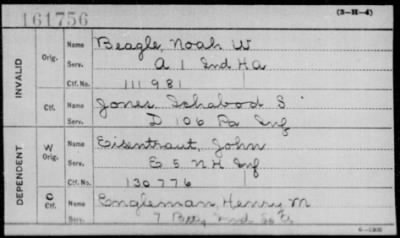 161756
(3-H-4)
INVALID
Orig.
Name Beagle, Noah W
Serv. A 1 Ind H A
Ctf. No. 111981
Ctf.
Name Jones Ichabod S
Serv. D 106 Pa Inf
DEPENDENT
W
Orig.
Name Eisentraut, John
Serv. E 5 N H Inf
Ctf. No. 130776
C
Ctf.
Name Engleman, Henry M
Serv. 7 Batty Ind